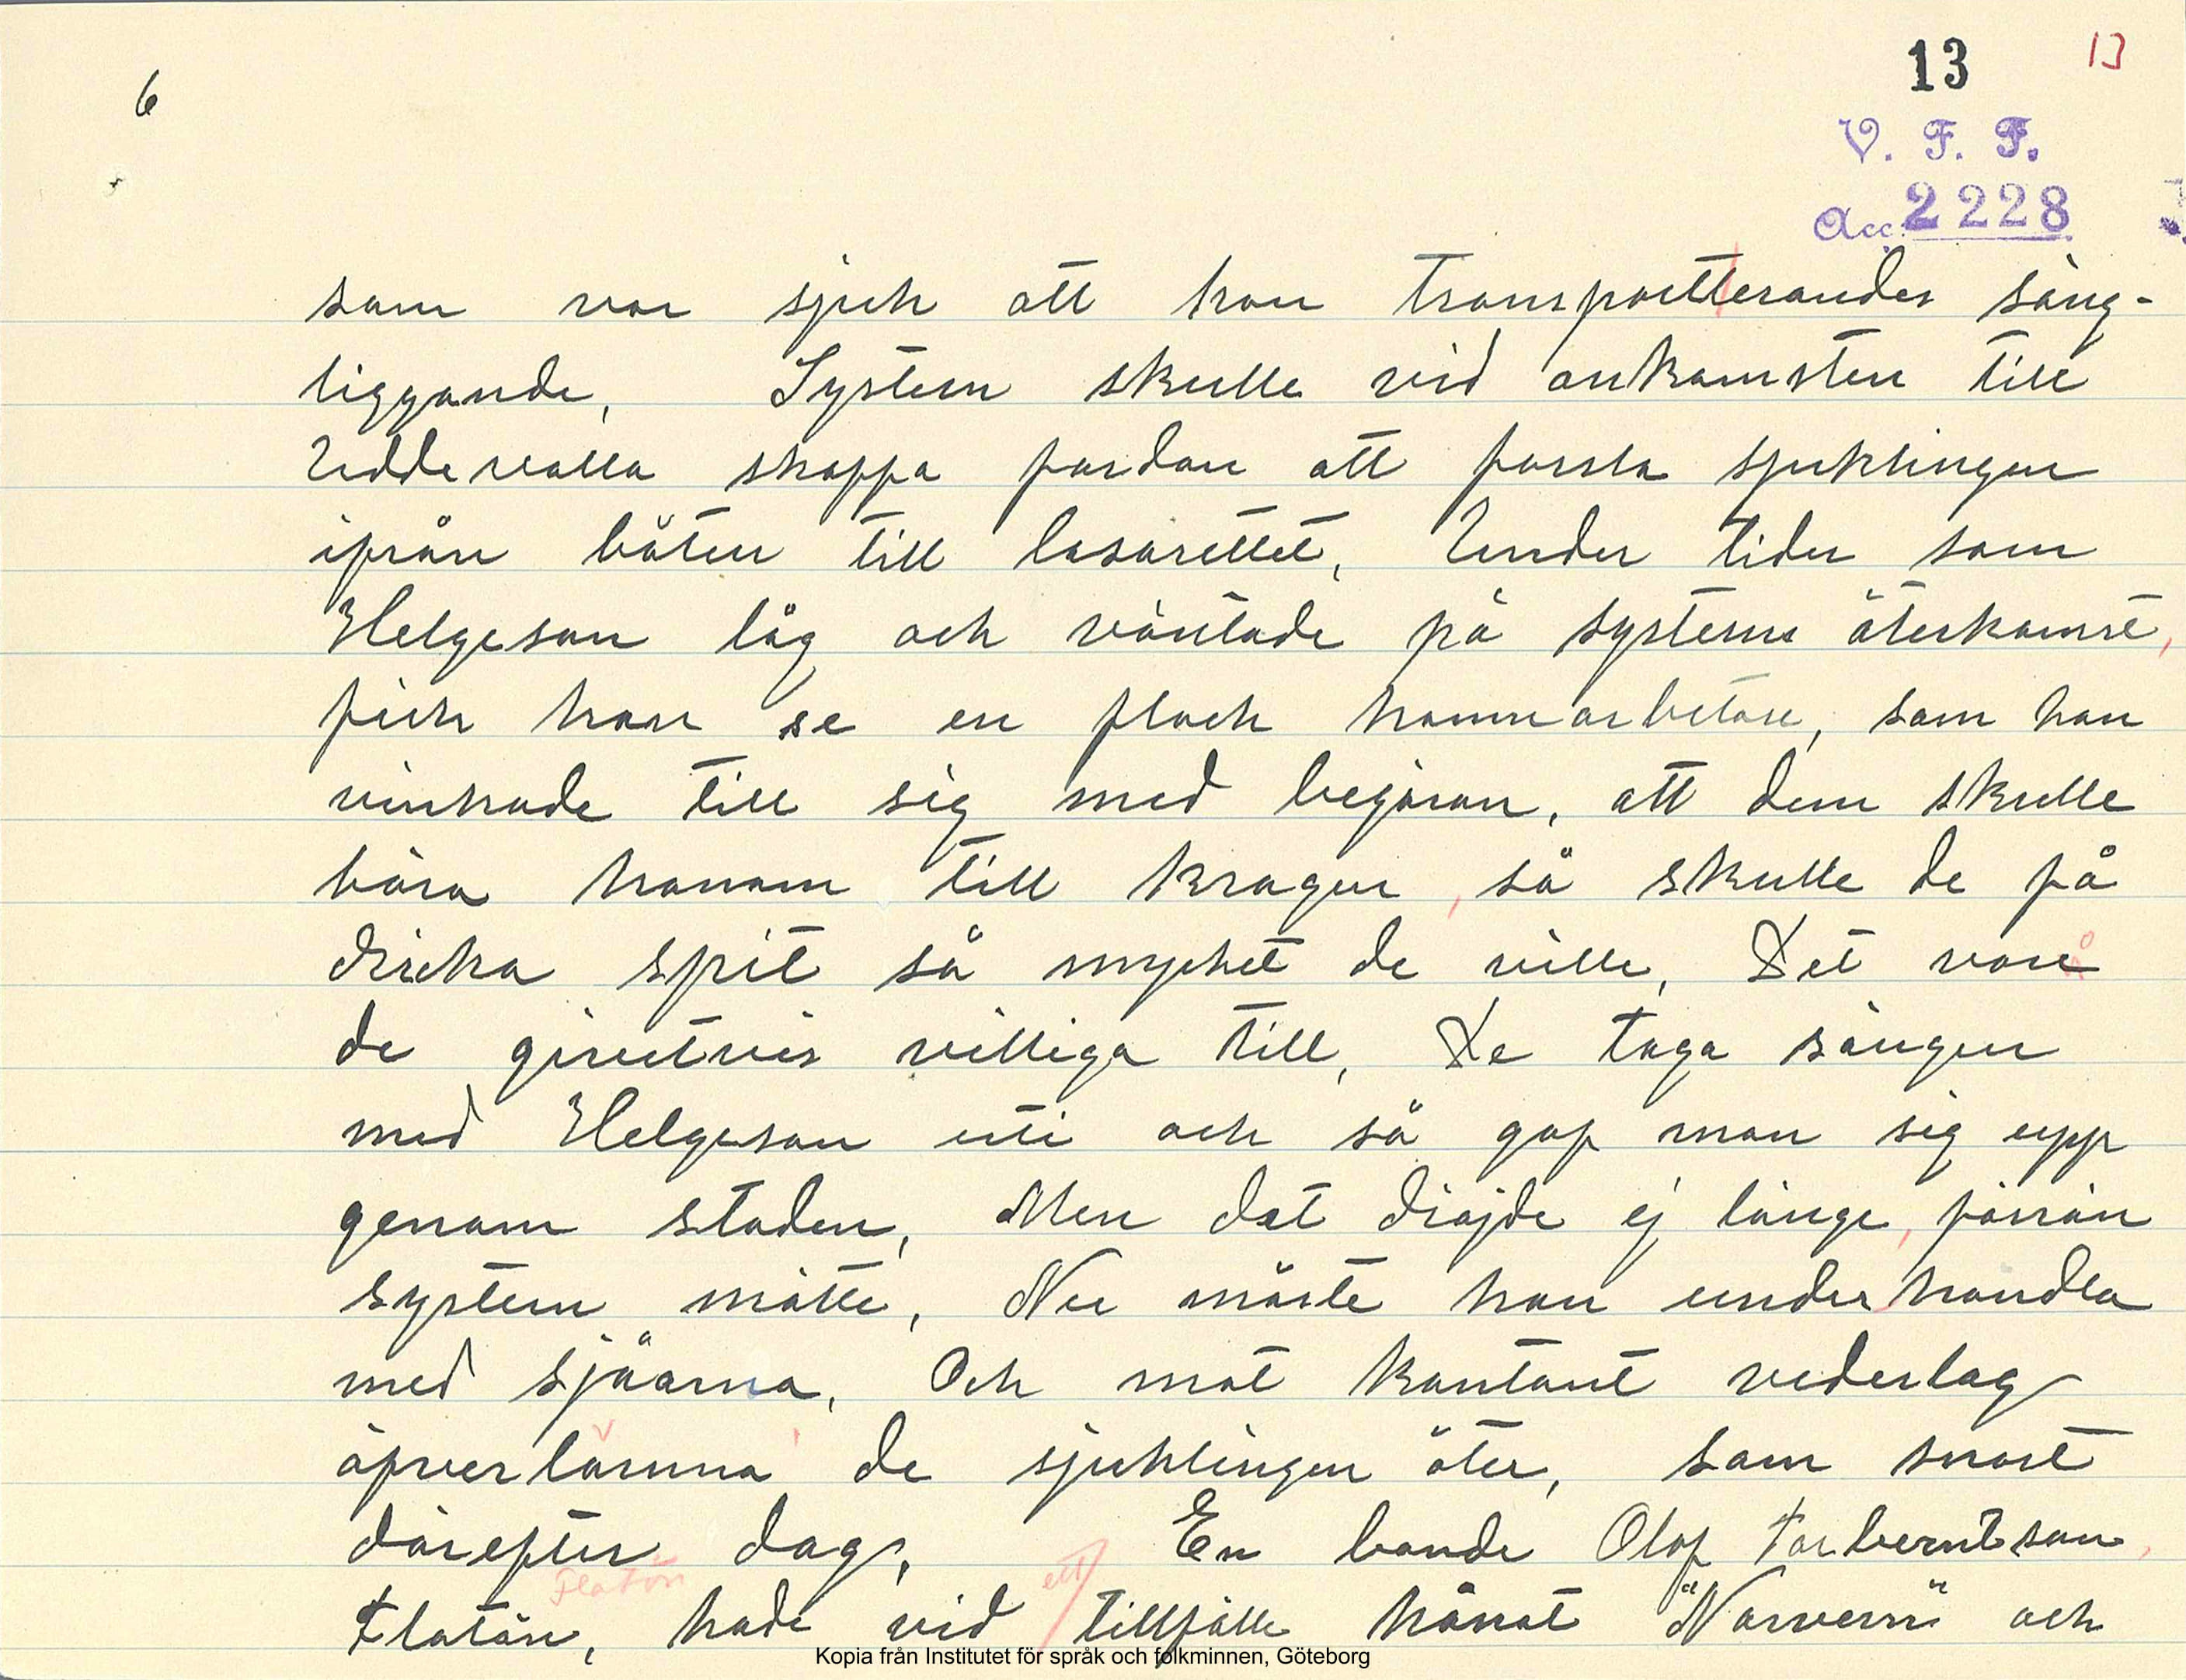 6
13 13
V. F. F.
Acc. 2228
som var sjuk att han transportterandes säng-
liggande, System skulle vid ankomsten till
Uddevalla skaffa fordon att forsla sjuklingen
ifrån båten till lasarettet, Under tiden som
Helgeson låg och väntade på systerns återkomst,
fick han se en flock hamnarbetare, som han
vinkade till sig med begäran, att dem skulle
bära honom till krogen, så skulle de få
dricka sprit så mycket de ville, Det vore
de givetvis villiga till, De toga sängen
med Helgeson uti och så gaf man sig upp
genom staden, Men det dröjde ej länge, förrän
system mötte, Nu måste hon underhandla
med sjåarna, Och mot kontant vederlag
öfverlämna de sjuklingen åter, som snart
därefter dog, En bonde Olof Torberntson,
Flatön
ett
Flatön, hade vid tillfälle hånat "Norvern" och
Kopia från Institutet för språk och folkminnen, Göteborg